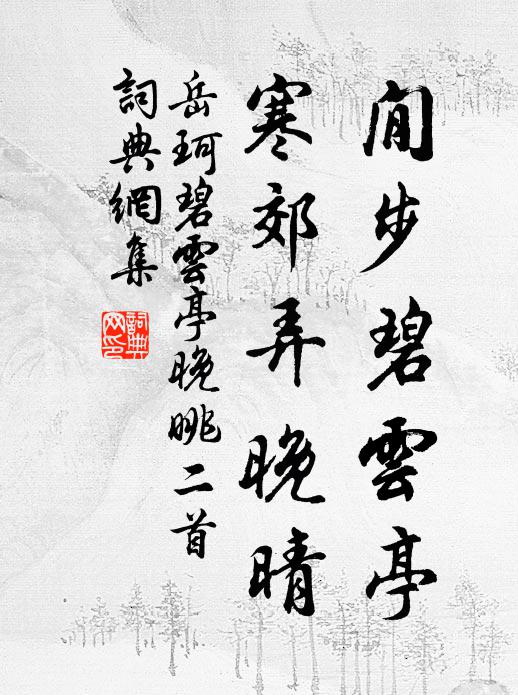 閒步碧雲亭
寒郊弄晚晴
岳珂碧雲亭晚眺二首
詞典網集
詞典网印